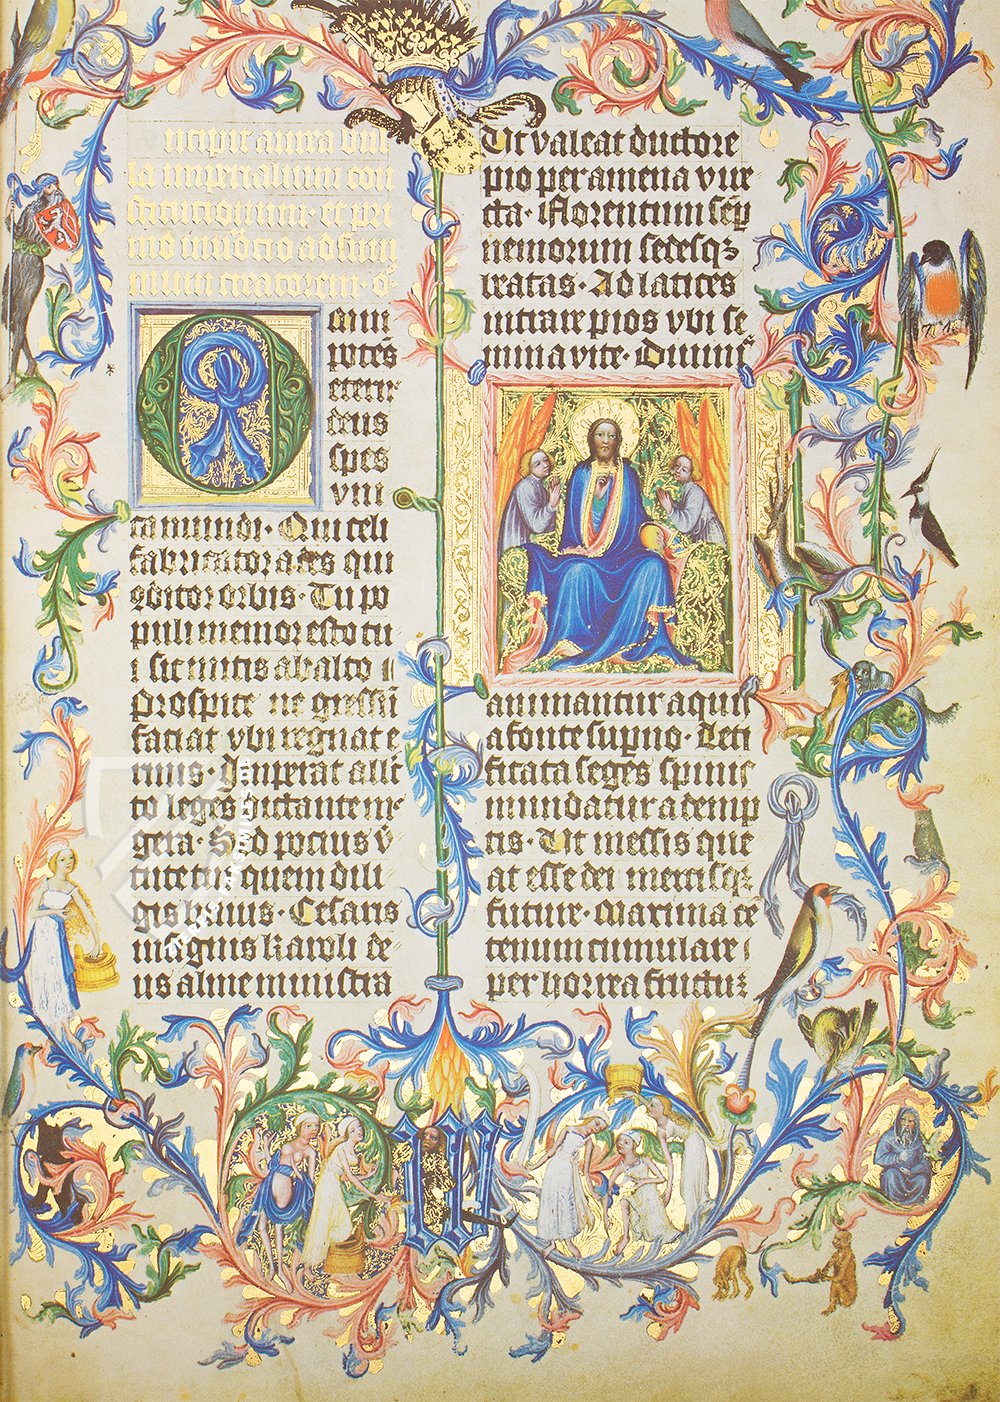 incipit aurea bul
la imperialium con
stitucionum · et pri
mo inuocio ad sum
mum creatorem ·
Omni
potēs
eterne
deus
spes
vni
ca mundi · Qui celi
fabricator ades qui
ꝯditor orbis · Tu po
puli memor esto tu
i sic mitis ab alto
prospice ne gressū
faciat vbi regnat e
rinis · Imperat alle
to leges dictante me
gera · Sed pocius v̄
tute tui quem dili
gis huius · Cesaris
insignis karoli de
us alme ministra
Ut valeat ductore
pio per amena vire
cta · florentum semp
nemorum sedesqꝫ
beatas · Ad latices
intrare pios vbi se
mina vite · Diuinis
animantur aquis
a fonte superno · Leti
ficata seges spinis
mundatur ademp
tis · Ut messis que
at esse dei mercisqꝫ
future · Maxima cē
tenum cumulare
per horrea fructum
W